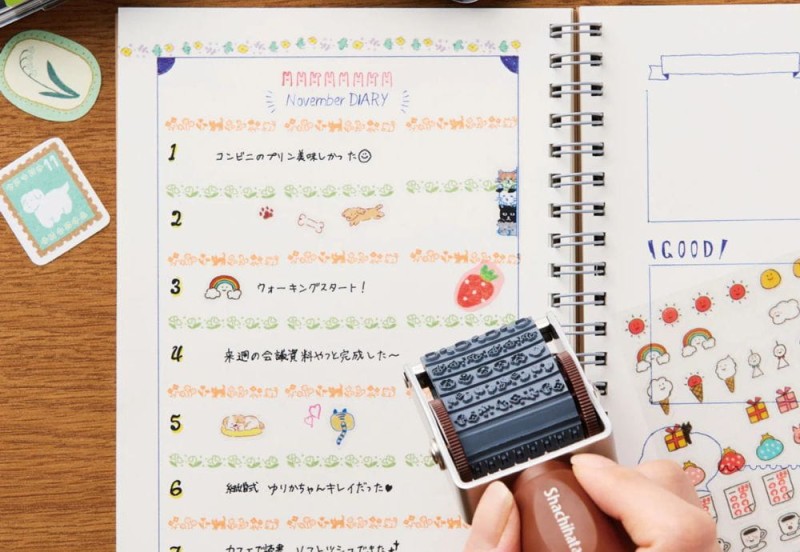 November DIARY
1 コンビニのプリン美味しかった
2
3 ウォーキングスタート!
4 来週の会議資料やっと完成した〜
5
6 結婚式 ゆりかちゃんキレイだった♥
7 カフェで読書
GOOD
Shachihata